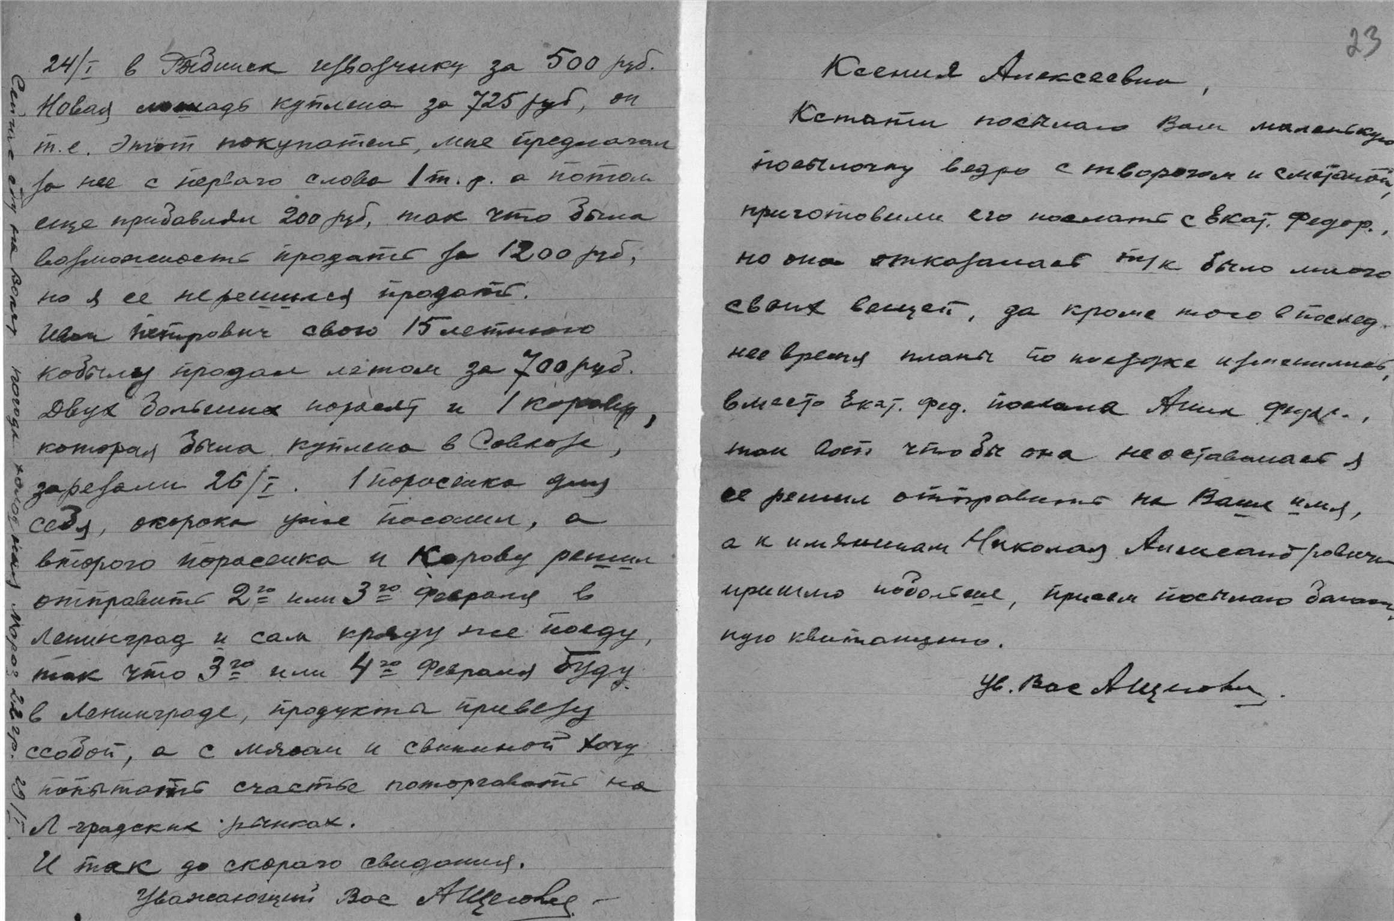 24/I в Рыбинск извозчику за 500 руб.
Новая лошадь куплена за 725 руб, он
т.е. Этот покупатель, мне предлагал
за нее с первого слова 1 т. р. а потом
еще прибавлял 200 руб, так что была
возможность продать за 1200 руб,
но я ее нерешился продать.
Иван Петрович свою 15 летнюю
кобылу продал летом за 700 руб.
Двух больших поросят и 1 корову,
которая была куплена в Совхозе,
зарезали 26/I. 1 поросенка для
себя, окорока уже посолил, а
второго поросенка и корову решил
отправить 2го или 3го февраля в
Ленинград и сам кряду же поеду,
так что 3го или 4го февраля буду
в Ленинграде, продукты привезу
ссобой, а с мясом и свининой хочу
попытать счастье поторговать на
Л-градских рынках.
И так до скораго свидания.
Уважающий Вас АЩегол
на Волгу погода холодная Мороз 22 гр. 29/I.
23
Ксения Алексеевна,
Кстати посылаю Вам маленькую
посылочку ведро с творогом и сметаной,
приготовили его послать с Екат. Федор.,
но она отказалась т/к было много
своих вещей, да кроме того в послед-
нее время планы по поездке изменились,
вместо Екат. Фед. поехала Анна,
так вот чтобы она неоставалась я
ее решил отправить на Ваше имя,
а к имянинам Николая Александровича
пришлю побольше, при сем посылаю багаж-
ную квитанцию.
Ув. Вас АЩегол